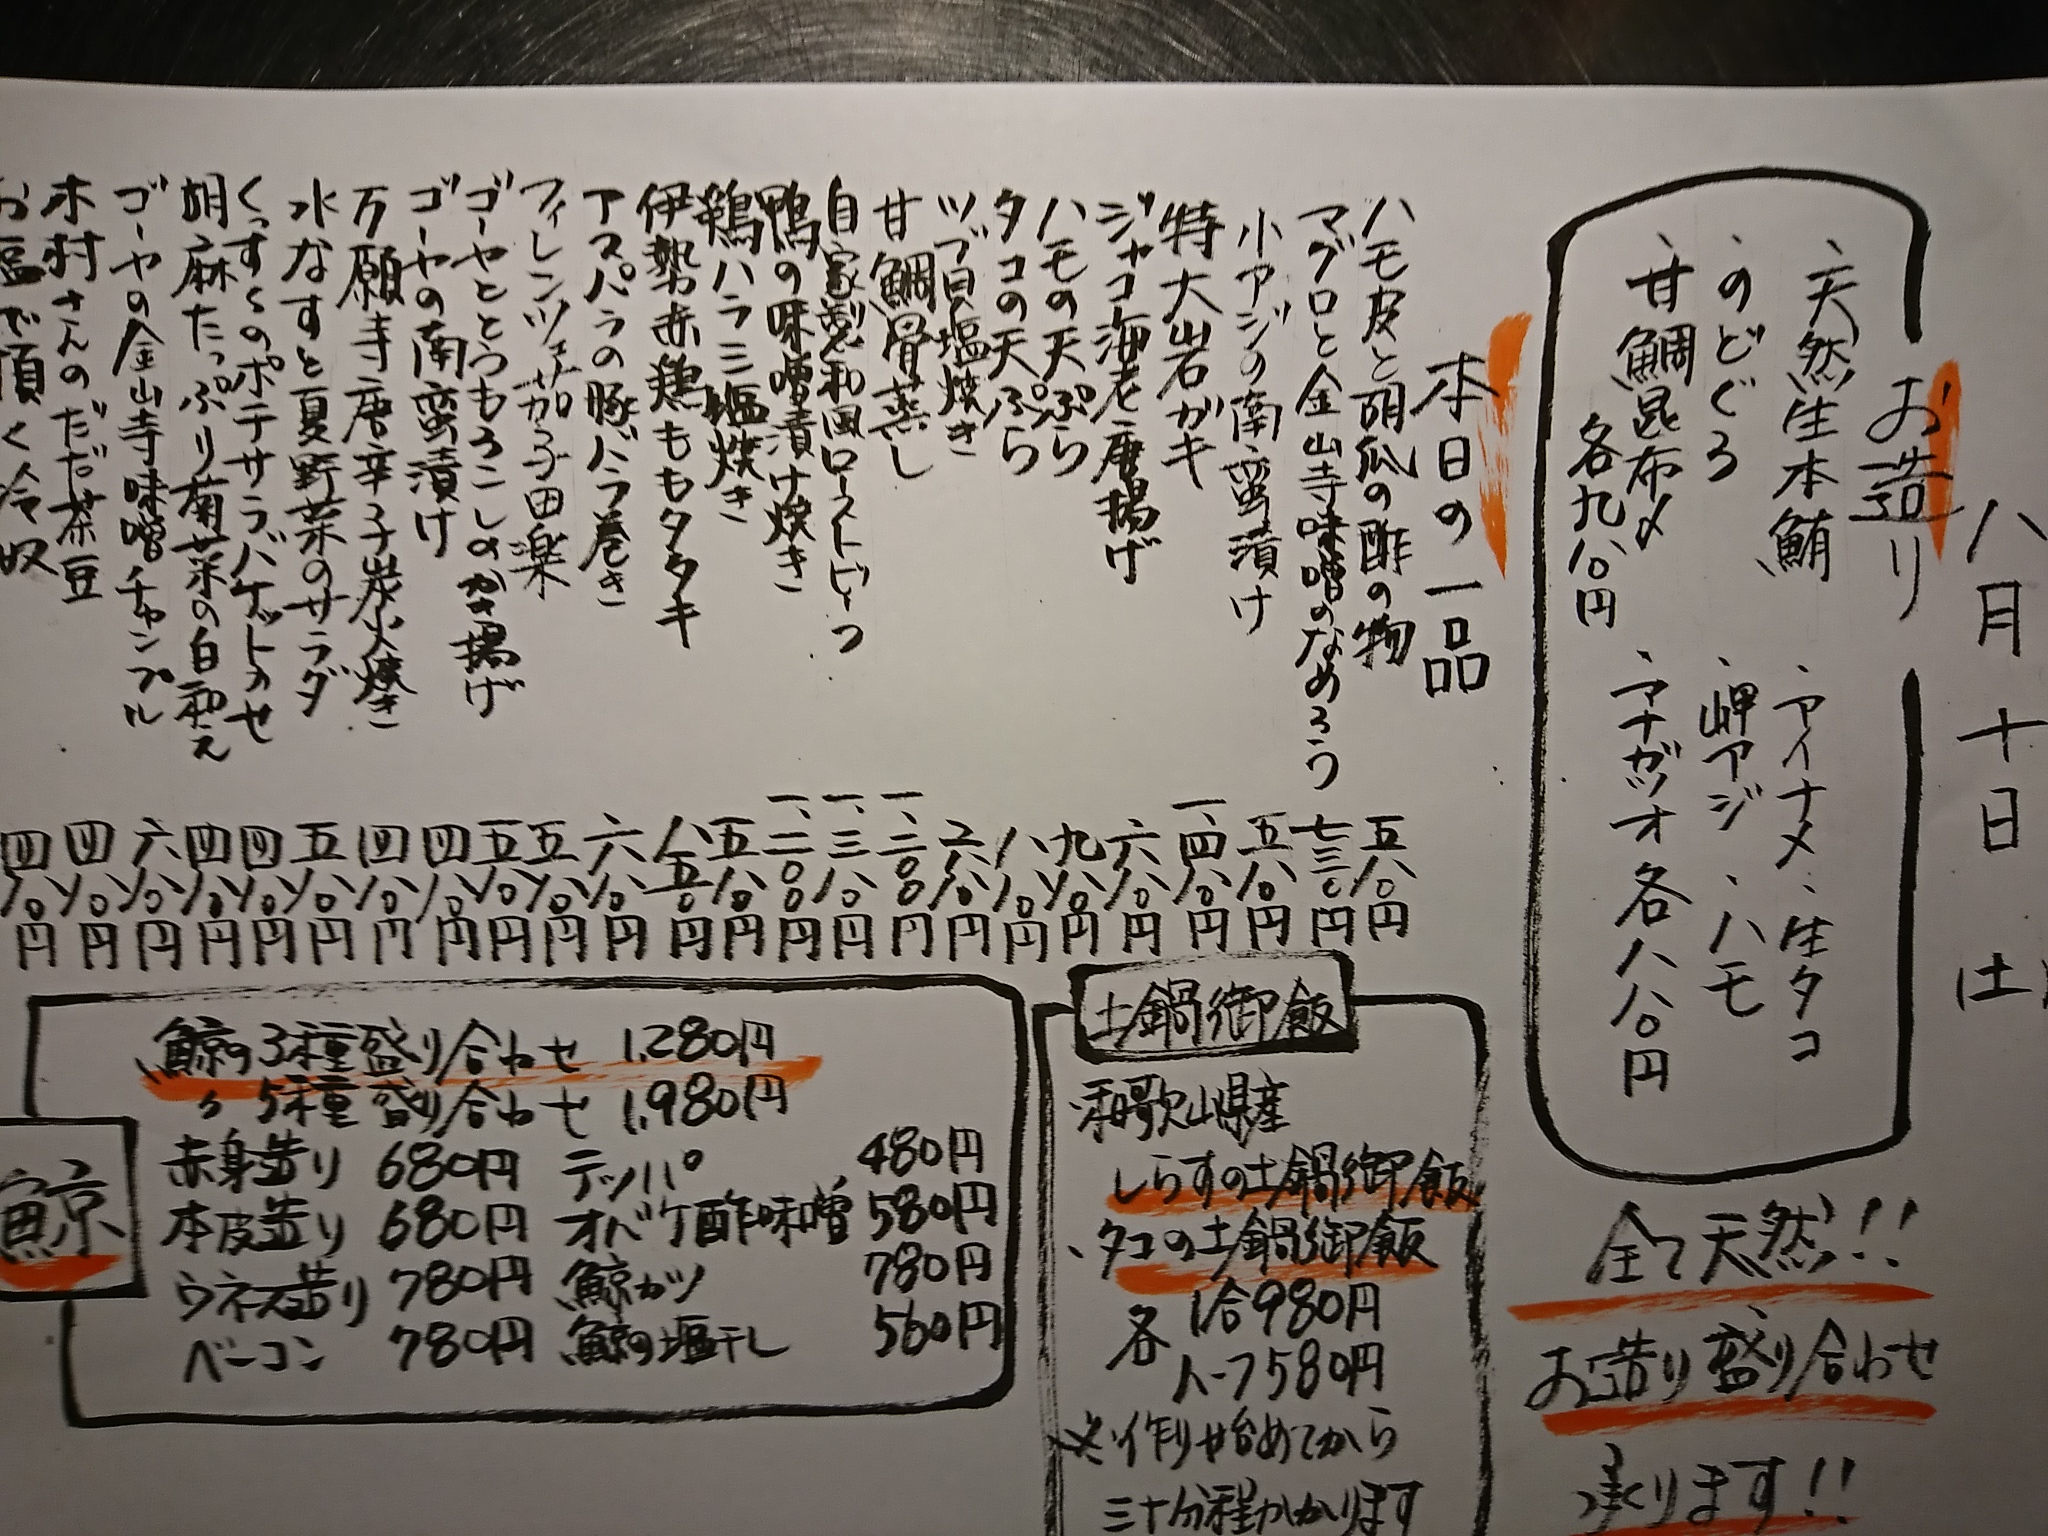 八月十日 土
お造り
、天然生本鮪
、のどぐろ
、甘鯛昆布〆
各九八〇円
、アイナメ、生タコ
、岬アジ、ハモ
、マナガツオ 各八八〇円
全て天然!!
お造り盛り合わせ
承ります!!
本日の一品
ハモ皮と胡瓜の酢の物 五八〇円
マグロと金山寺味噌のなめろう 七三〇円
小アジの南蛮漬け 五八〇円
特大岩ガキ 一、四八〇円
ジャコ海老唐揚げ 六八〇円
ハモの天ぷら 九八〇円
タコの天ぷら 八八〇円
ツブ貝塩焼き 六八〇円
甘鯛骨蒸し 一、二〇〇円
自家製和風ローストビーフ 一、三八〇円
鴨の味噌漬け焼き 一、二〇〇円
鶏ハラミ塩焼き 五八〇円
伊勢赤鶏ももタタキ 八五〇円
アスパラの豚バラ巻き 六八〇円
フィレンツェ茄子田楽 五八〇円
ゴーヤととうもろこしのかき揚げ 五八〇円
ゴーヤの南蛮漬け 四八〇円
万願寺唐辛子炭火焼き 四八〇円
水なすと夏野菜のサラダ 五八〇円
くっすくのポテサラバゲットのせ 四八〇円
胡麻たっぷり菊菜の白和え 四八〇円
ゴーヤの金山寺味噌チャンプル 六八〇円
木村さんのだだ茶豆 四八〇円
お塩で頂く冷奴 四八〇円
土鍋御飯
、和歌山県産
しらすの土鍋御飯
、タコの土鍋御飯
各 1合980円
ハーフ580円
※作り始めてから
三十分程かかります
鯨
鯨の3種盛り合わせ 1,280円
〃 5種盛り合わせ 1,980円
赤身造り 680円
本皮造り 680円
ウネス造り 780円
ベーコン 780円
テッパ 480円
オバケ酢味噌 580円
鯨カツ 780円
鯨の塩干し 560円